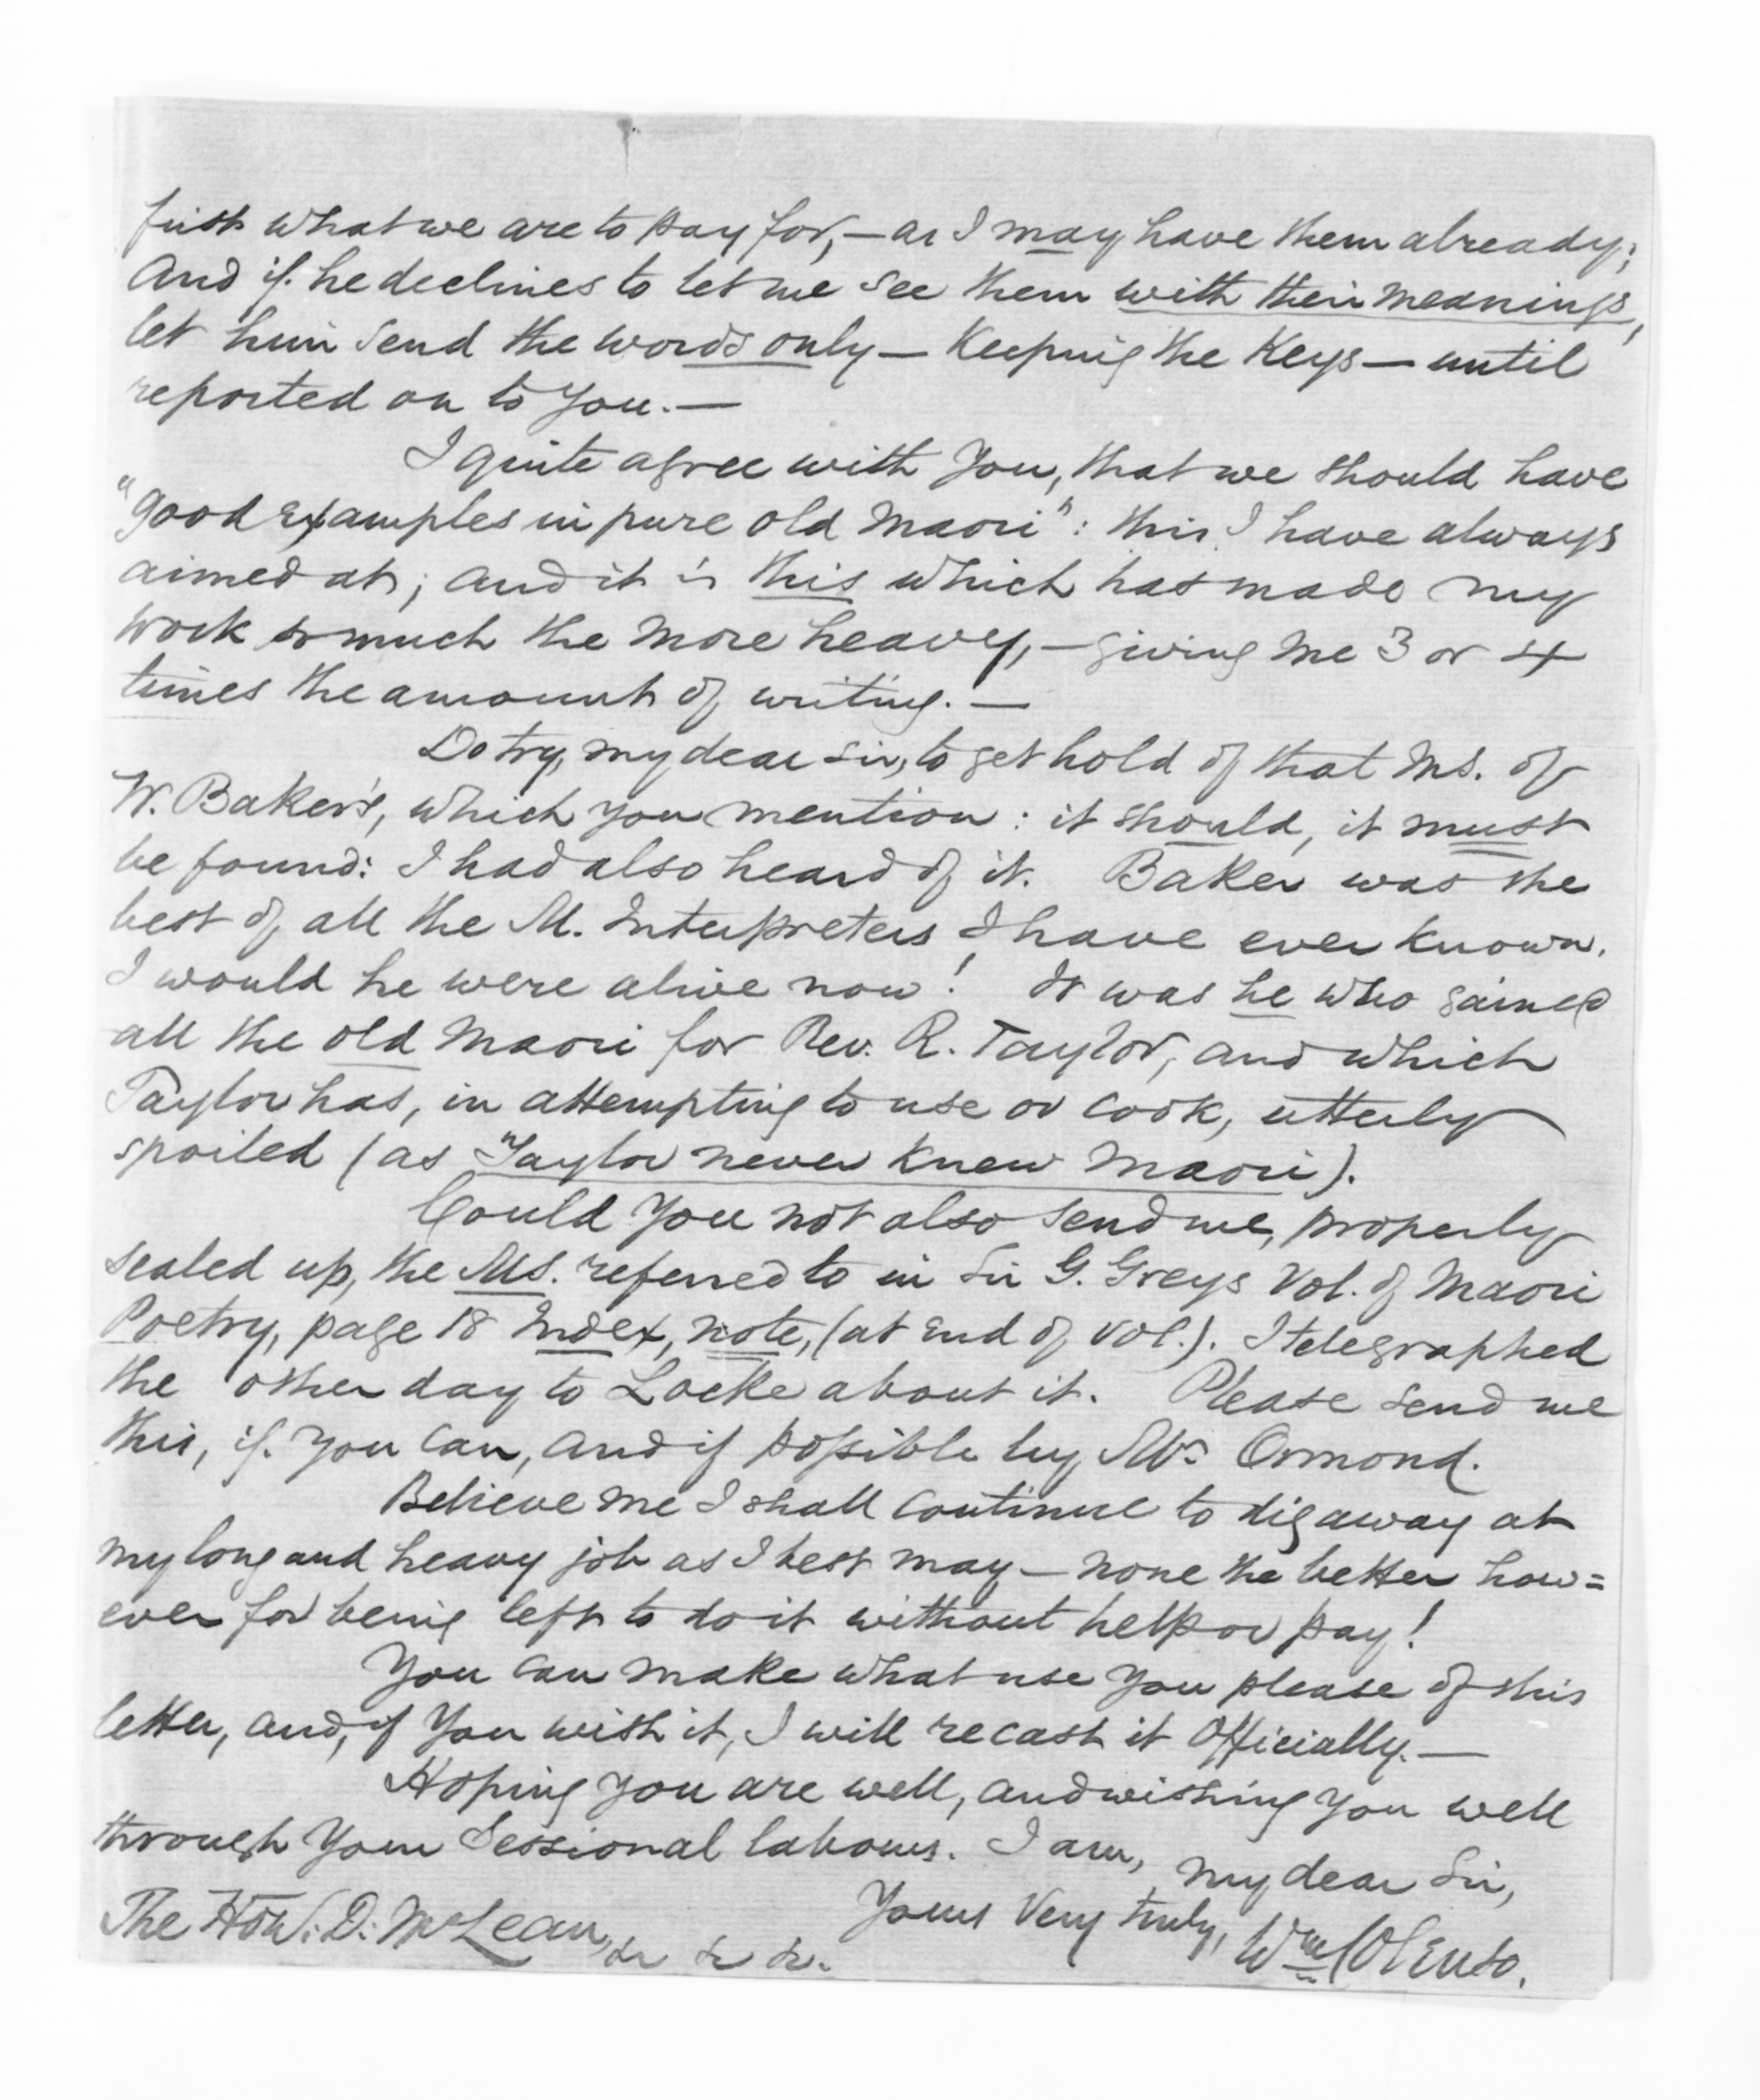 first what we are to pay for,—as I may have them already;
And if he declines to let me see them with their meanings,
let him send the words only—Keeping the Keys—until
reported on to you.—
I quite agree with you, that we should have
"good examples in pure old Maori": this I have always
aimed at; and it is this which has made my
work so much the more heavy,—giving me 3 or 4
times the amount of writing.—
Do try, my dear Sir, to get hold of that MS. of
W. Baker's, which you mention: it should, it must
be found: I had also heard of it. Baker was the
best of all the M. Interpreters I have ever known.
I would he were alive now! It was he who gained
all the old Maori for Rev. R. Taylor, and which
Taylor has, in attempting to use or cook, utterly
spoiled (as Taylor never knew Maori).
Could you not also send me, properly
sealed up, the MS. referred to in Sir G. Greys Vol. of Maori
Poetry, page 18 Index, note, (at end of vol.). I telegraphed
the other day to Locke about it. Please send me
this, if you can, and if possible by Mr Ormond.
Believe me I shall continue to dig away at
my long and heavy job as I best may—none the better how=
ever for being left to do it without help or pay!
You can make what use you please of this
letter, and, if you wish it, I will recast it officially.—
Hoping you are well, and wishing you well
through your Sessional labours. I am, my dear Sir,
Yours very truly,
The Hon: D: McLean, &c &c &c. Wm Colenso.